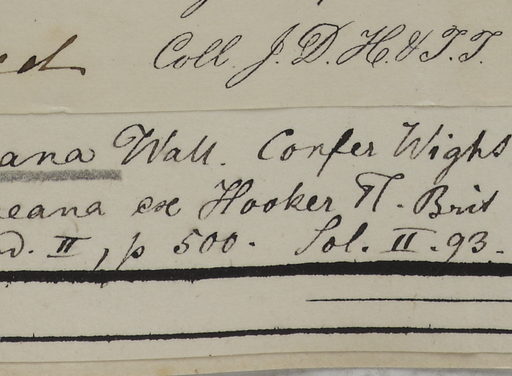 Coll. J. D. H. & T. T.
ana Wall. Confer Wight
eana ex Hooker Fl. Brit
d. II, p 500. Sol. II. 93.